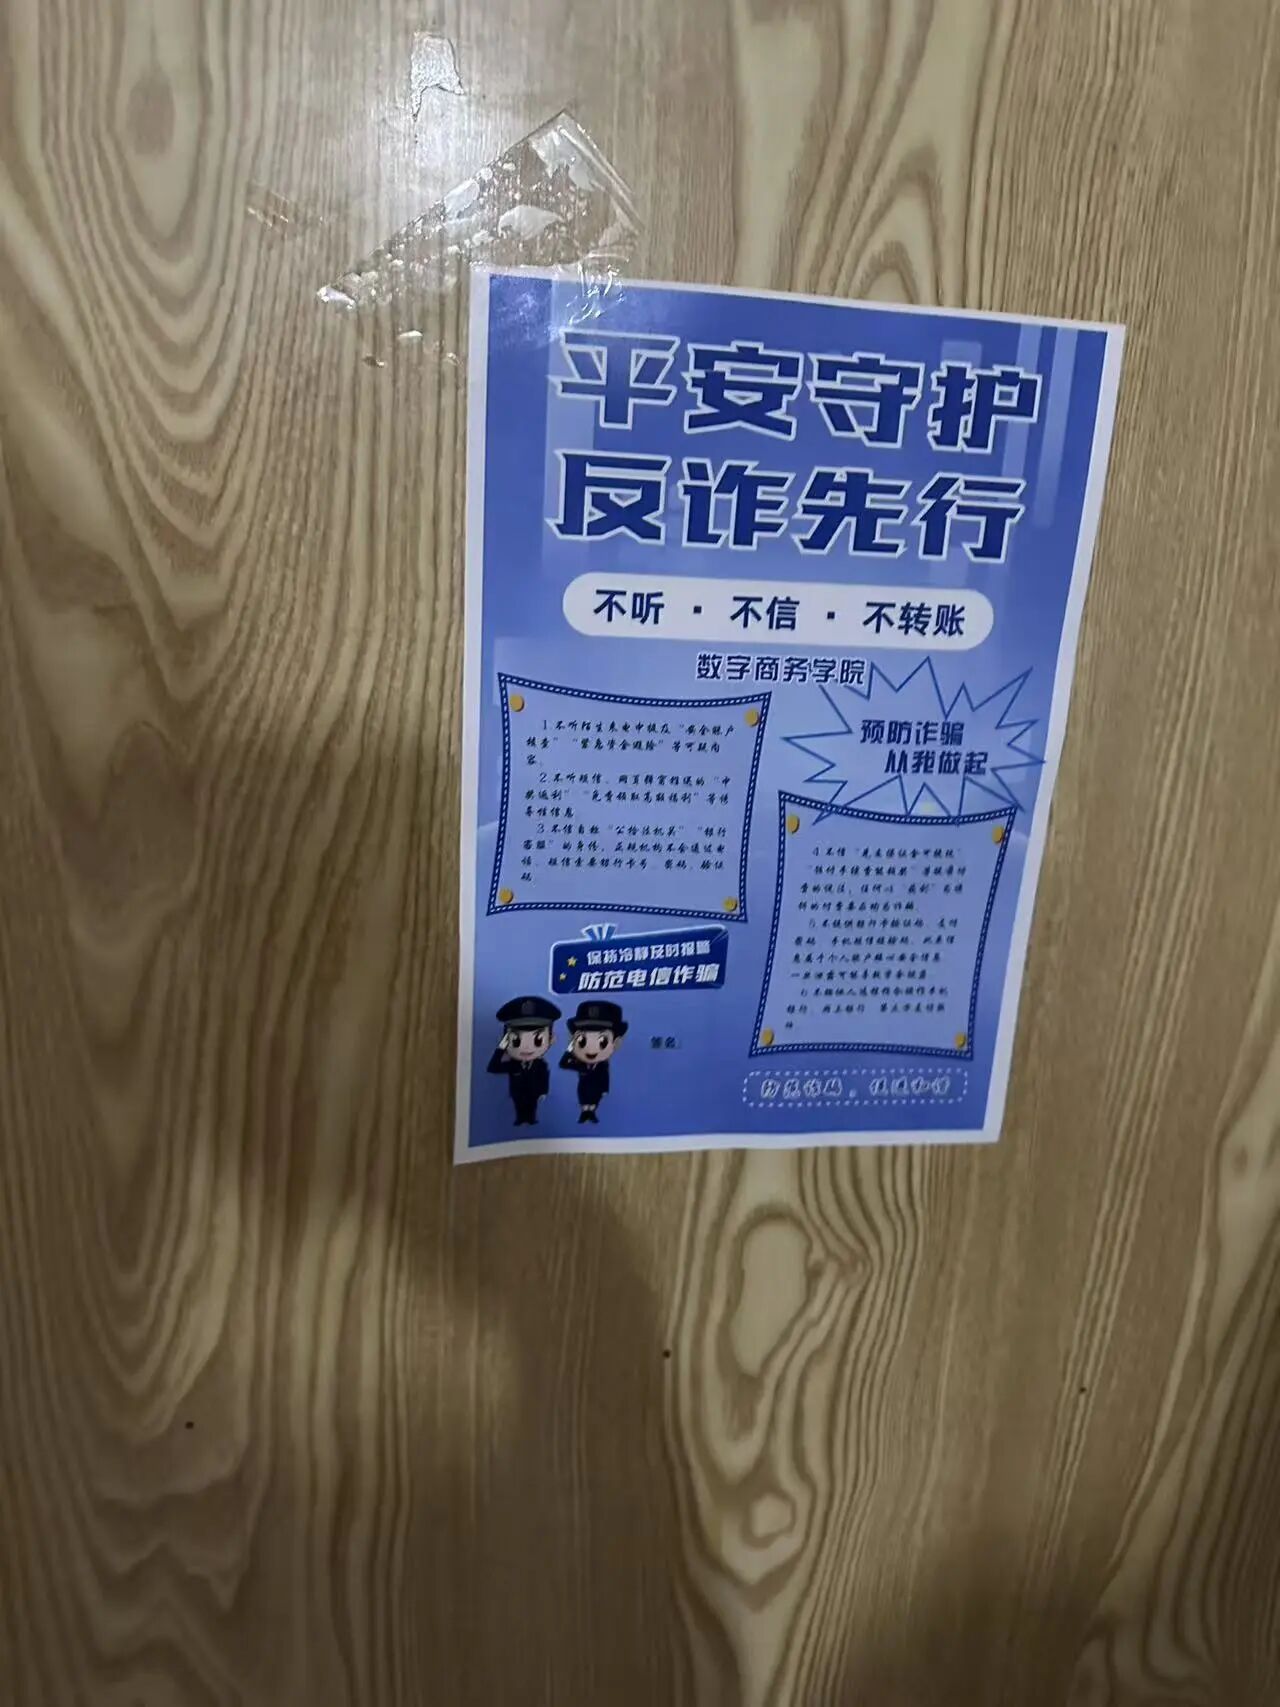 平安守护
反诈先行
不听·不信·不转账
数字商务学院
预防诈骗
从我做起
1.不听陌生来电中提及“安全账户
核查”“紧急资金避险”等可疑内
容。
2.不听短信、网页弹窗推送的“中
奖返利”“免费领取高额福利”等诱
导性信息
3.不信自称“公检法机关”“银行
客服”的身份，正规机构不会通过电
话、短信索要银行卡号、密码、验证
码
4.不信“先交保证金可提现”
费的说法，任何以“获利”为诱
饵的付费要求均为诈骗。
5.不提供银行卡验证码、支付
密码、手机短信校验码，此类信
息属于个人账户核心安全信息
一旦泄露可能导致资金被盗。
银行、网上银行、第三方支付软
件
保持冷静及时报警
防范电信诈骗
签名：
防范诈骗，促进和谐